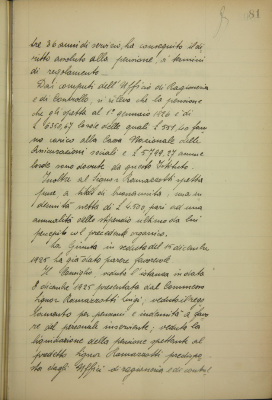 181
tre 36 anni di servizio, ha conseguito il di
ritto assoluto alla pensione, a termini
di regolamento.
Dai computi dell'Ufficio di Ragioneria
e di Controllo, si rileva che la pensione
che gli spetta al 1° gennaio 1926 è di
L. 6350,67 lorde delle quali L. 551,40 fan
no carico alla Cassa Nazionale delle
Assicurazioni sociali e L. 5799,27 annue
lorde sono dovute da questo Istituto.
Inoltre al signor Ramazzotti spetta
pure a titolo di buonuscita, una in
dennità netta di L. 4.500 pari ad una
annualità dello stipendio ultimo da lui
percepito col precedente organico.
La Giunta in seduta del 15 dicembre
1925 ha già dato parere favorevole
Il Consiglio, veduta l'istanza in data
8 dicembre 1925 presentata dal Commesso
signor Ramazzotti Luigi; veduto il rego
lamento per pensioni e indennità a favo
re del personale inserviente; veduta la
liquidazione della pensione spettante al
predetto signor Ramazzotti predispo
sta dagli Uffici di ragioneria e di control